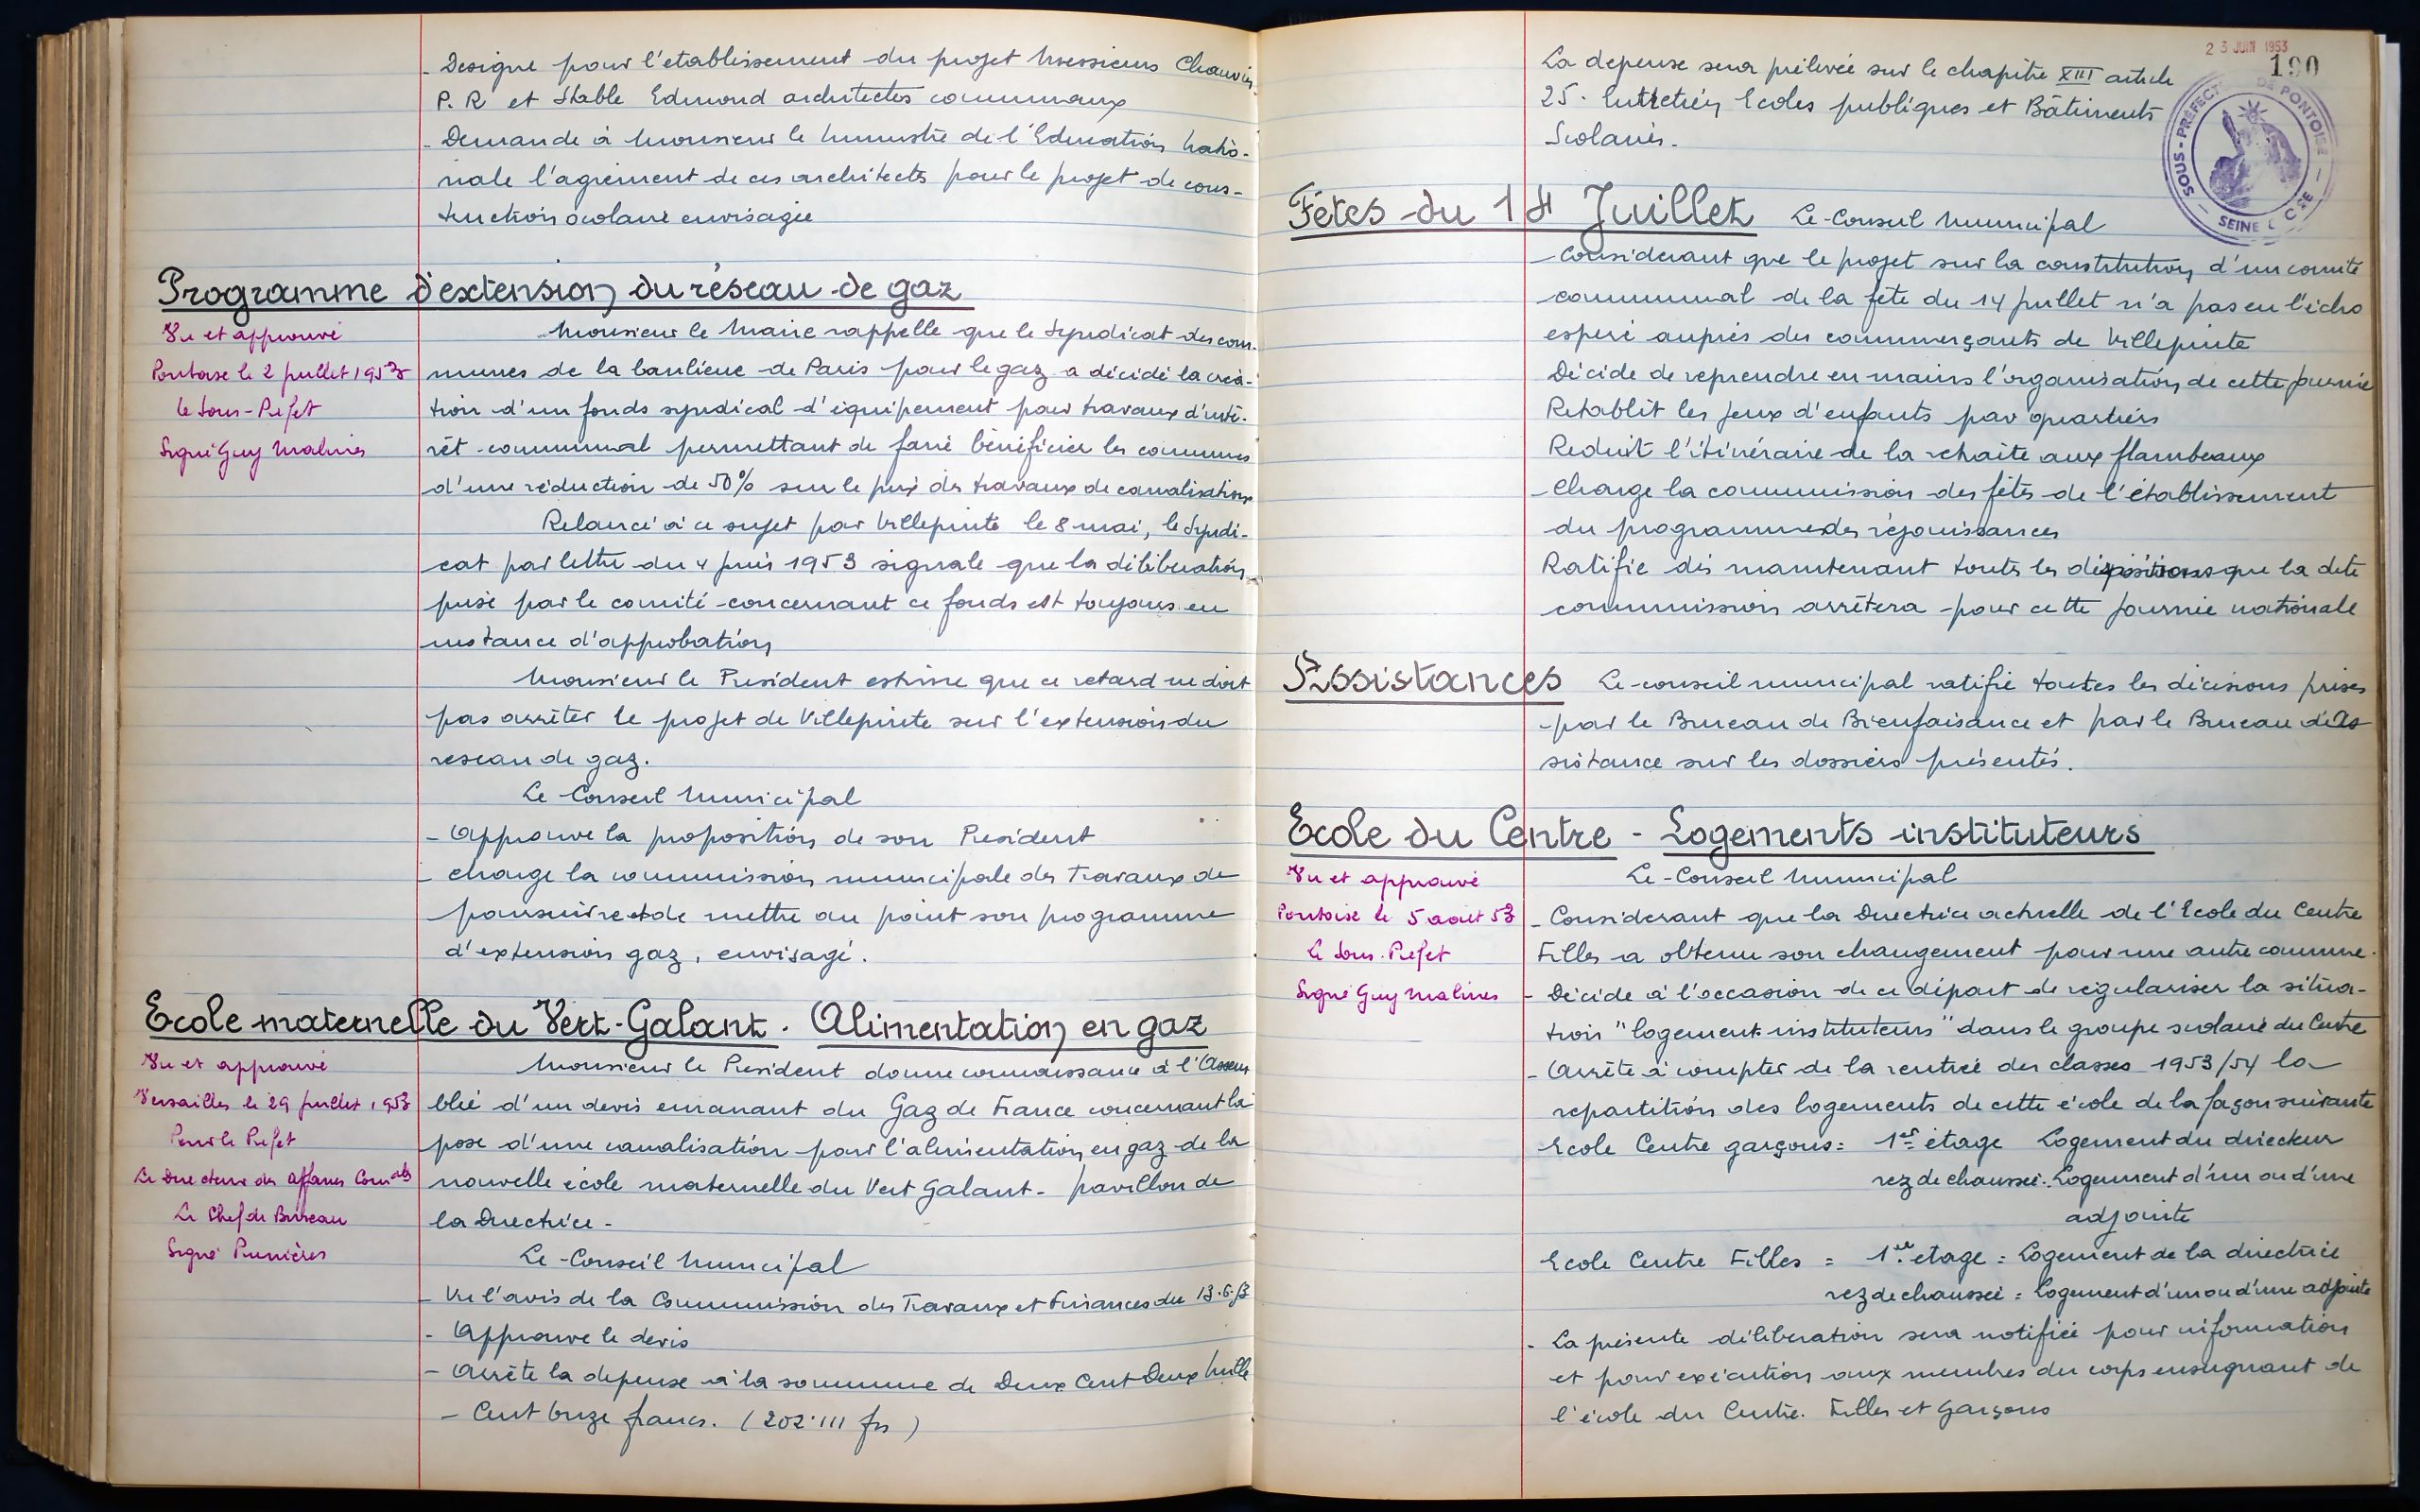 - Designe pour l'etablissement du projet Messieurs Chauvin
P. R et Stable Edmond architectes communaux
- Demande à Monsieur le Ministre de l'Education Natio-
nale l'agrement de ces architects pour le projet de cons-
truction scolaire envisagée
Programme d'extension du réseau de gaz
Vu et approuvé
Pontoise le 2 juillet 1953
le Sous-Préfet
Signé Guy Malines
Monsieur le Maire rappelle que le Syndicat des com-
munes de la banlieue de Paris pour le gaz a décidé la créa-
tion d'un fonds syndical d'équipement pour travaux d'inté-
rêt communal permettant de faire bénéficier les communes
d'une réduction de 50% sur le prix des travaux de canalisations
Relancé à ce sujet par Villepinte le 8 mai, le Syndi-
cat par lettre du 4 juin 1953 signale que la déliberation
prise par le comité concernant ce fonds est toujours en
instance d'approbation
Monsieur le President estime que ce retard ne doit
pas arrêter le projet de Villepinte sur l'extension du
reseau de gaz.
Le Conseil Municipal
- Approuve la proposition de son President
- charge la commission municipale des Travaux de
poursuivre et de mettre au point son programme
d'extension gaz, envisagé.
Ecole maternelle du Vert-Galant. Alimentation en gaz
Vu et approuvé
Versailles le 29 juillet 1953
Pour le Préfet
Le Directeur des Affaires Com ales
Le Chef de Bureau
Signé Prunières
Monsieur le President donne connaissance à l'Assem
blée d'un devis emanant du Gaz de France concernant la
pose d'une canalisation pour l'alimentation en gaz de la
nouvelle école maternelle du Vert Galant - pavillon de
la Directrice -
Le Conseil Municipal
- Vu l'avis de la Commission des Travaux et Finances du 13.6.53
- Approuve le devis
- Arrête la depense à la somme de Deux Cent Deux Mille
- Cent Onze francs. (202.111 frs)
23 JUIN 1953
190
SOUS-PRÉFECTURE DE PONTOISE
SEINE & OISE
La depense sera prélevée sur le chapitre XIII article
25. Entretien Ecoles publiques et Bâtiments
Scolaires.
Fêtes du 14 Juillet Le Conseil Municipal
- Considerant que le projet sur la constitution d'un comité
communal de la fête du 14 juillet n'a pas eu l'écho
esperé auprès des commerçants de Villepinte
Décide de reprendre en mains l'organisation de cette journée
Retablit les jeux d'enfants par quartiers
Reduit l'itinéraire de la retraite aux flambeaux
- Charge la commission des fêtes de l'établissement
du programme des réjouissances
Ratifie dès maintenant toutes les dispositions que la dite
commission arrêtera pour cette journée nationale
Assistances Le conseil municipal ratifie toutes les décisions prises
par le Bureau de Bienfaisance et par le Bureau d'As
sistance sur les dossiers présentés.
Ecole du Centre - Logements instituteurs
Vu et approuvé
Pontoise le 5 août 53
Le Sous-Préfet
Signé Guy Malines
Le Conseil Municipal
- Considerant que la Directrice actuelle de l'Ecole du Centre
Filles a obtenu son changement pour une autre commune.
- Décide à l'occasion de ce départ de régulariser la situa-
tion "logement instituteurs" dans le groupe scolaire du Centre
- Arrête à compter de la rentrée des classes 1953/54 la
repartition des logements de cette école de la façon suivante
Ecole Centre garçons = 1er étage Logement du directeur
rez de chaussée. Logement d'un ou d'une
adjointe
Ecole Centre Filles = 1er etage = Logement de la directrice
rez de chaussée = Logement d'un ou d'une adjointe
- La présente déliberation sera notifiée pour information
et pour execution aux membres du corps enseignant de
l'école du Centre. Filles et Garçons